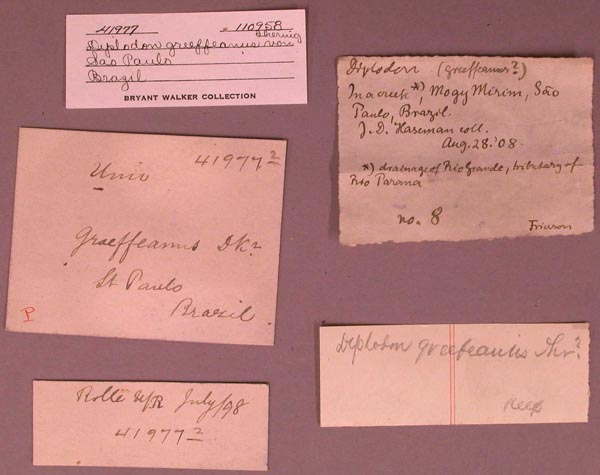 41977 110958
Diplodon greeffeanus von Ihering
Sao Paulo
Brazil
BRYANT WALKER COLLECTION
Diplodon (greeffeanus?)
In a creek *), Mogy Mirim, São
Paulo, Brazil.
J. D. Haseman coll.
Aug. 28. '08.
*) drainage of Rio Grande, tributary of
Rio Parana
no. 8
Frierson
41977 2
Unio
Graeffeanus Dkr
St Paulo
Brazil
P
Diplodon greefeanus Ihr?
Keep
Rolle July/98
41977 2